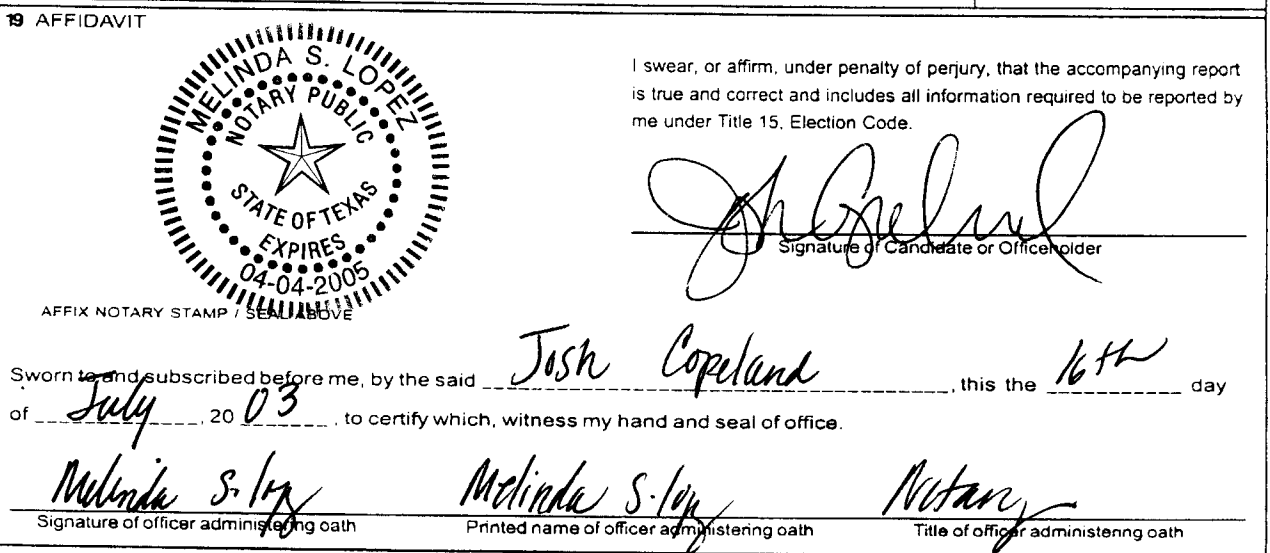 19 AFFIDAVIT
MELINDA S. LOPEZ
NOTARY PUBLIC
STATE OF TEXAS
EXPIRES
04-04-2005
I swear, or affirm, under penalty of perjury, that the accompanying report
is true and correct and includes all information required to be reported by
me under Title 15, Election Code.
Signature of Candidate or Officeholder
AFFIX NOTARY STAMP / SEAL ABOVE
Sworn to and subscribed before me, by the said Josh Copeland, this the 16th day
of July, 20 03, to certify which, witness my hand and seal of office.
Melinda S. Lopez Melinda S. Lopez Notary
Signature of officer administering oath Printed name of officer administering oath Title of officer administering oath